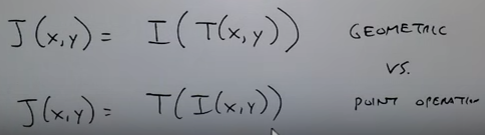 J(x,y) = I(T(x,y)) GEOMETRIC
VS.
J(x,y) = T(I(x,y)) POINT OPERATION